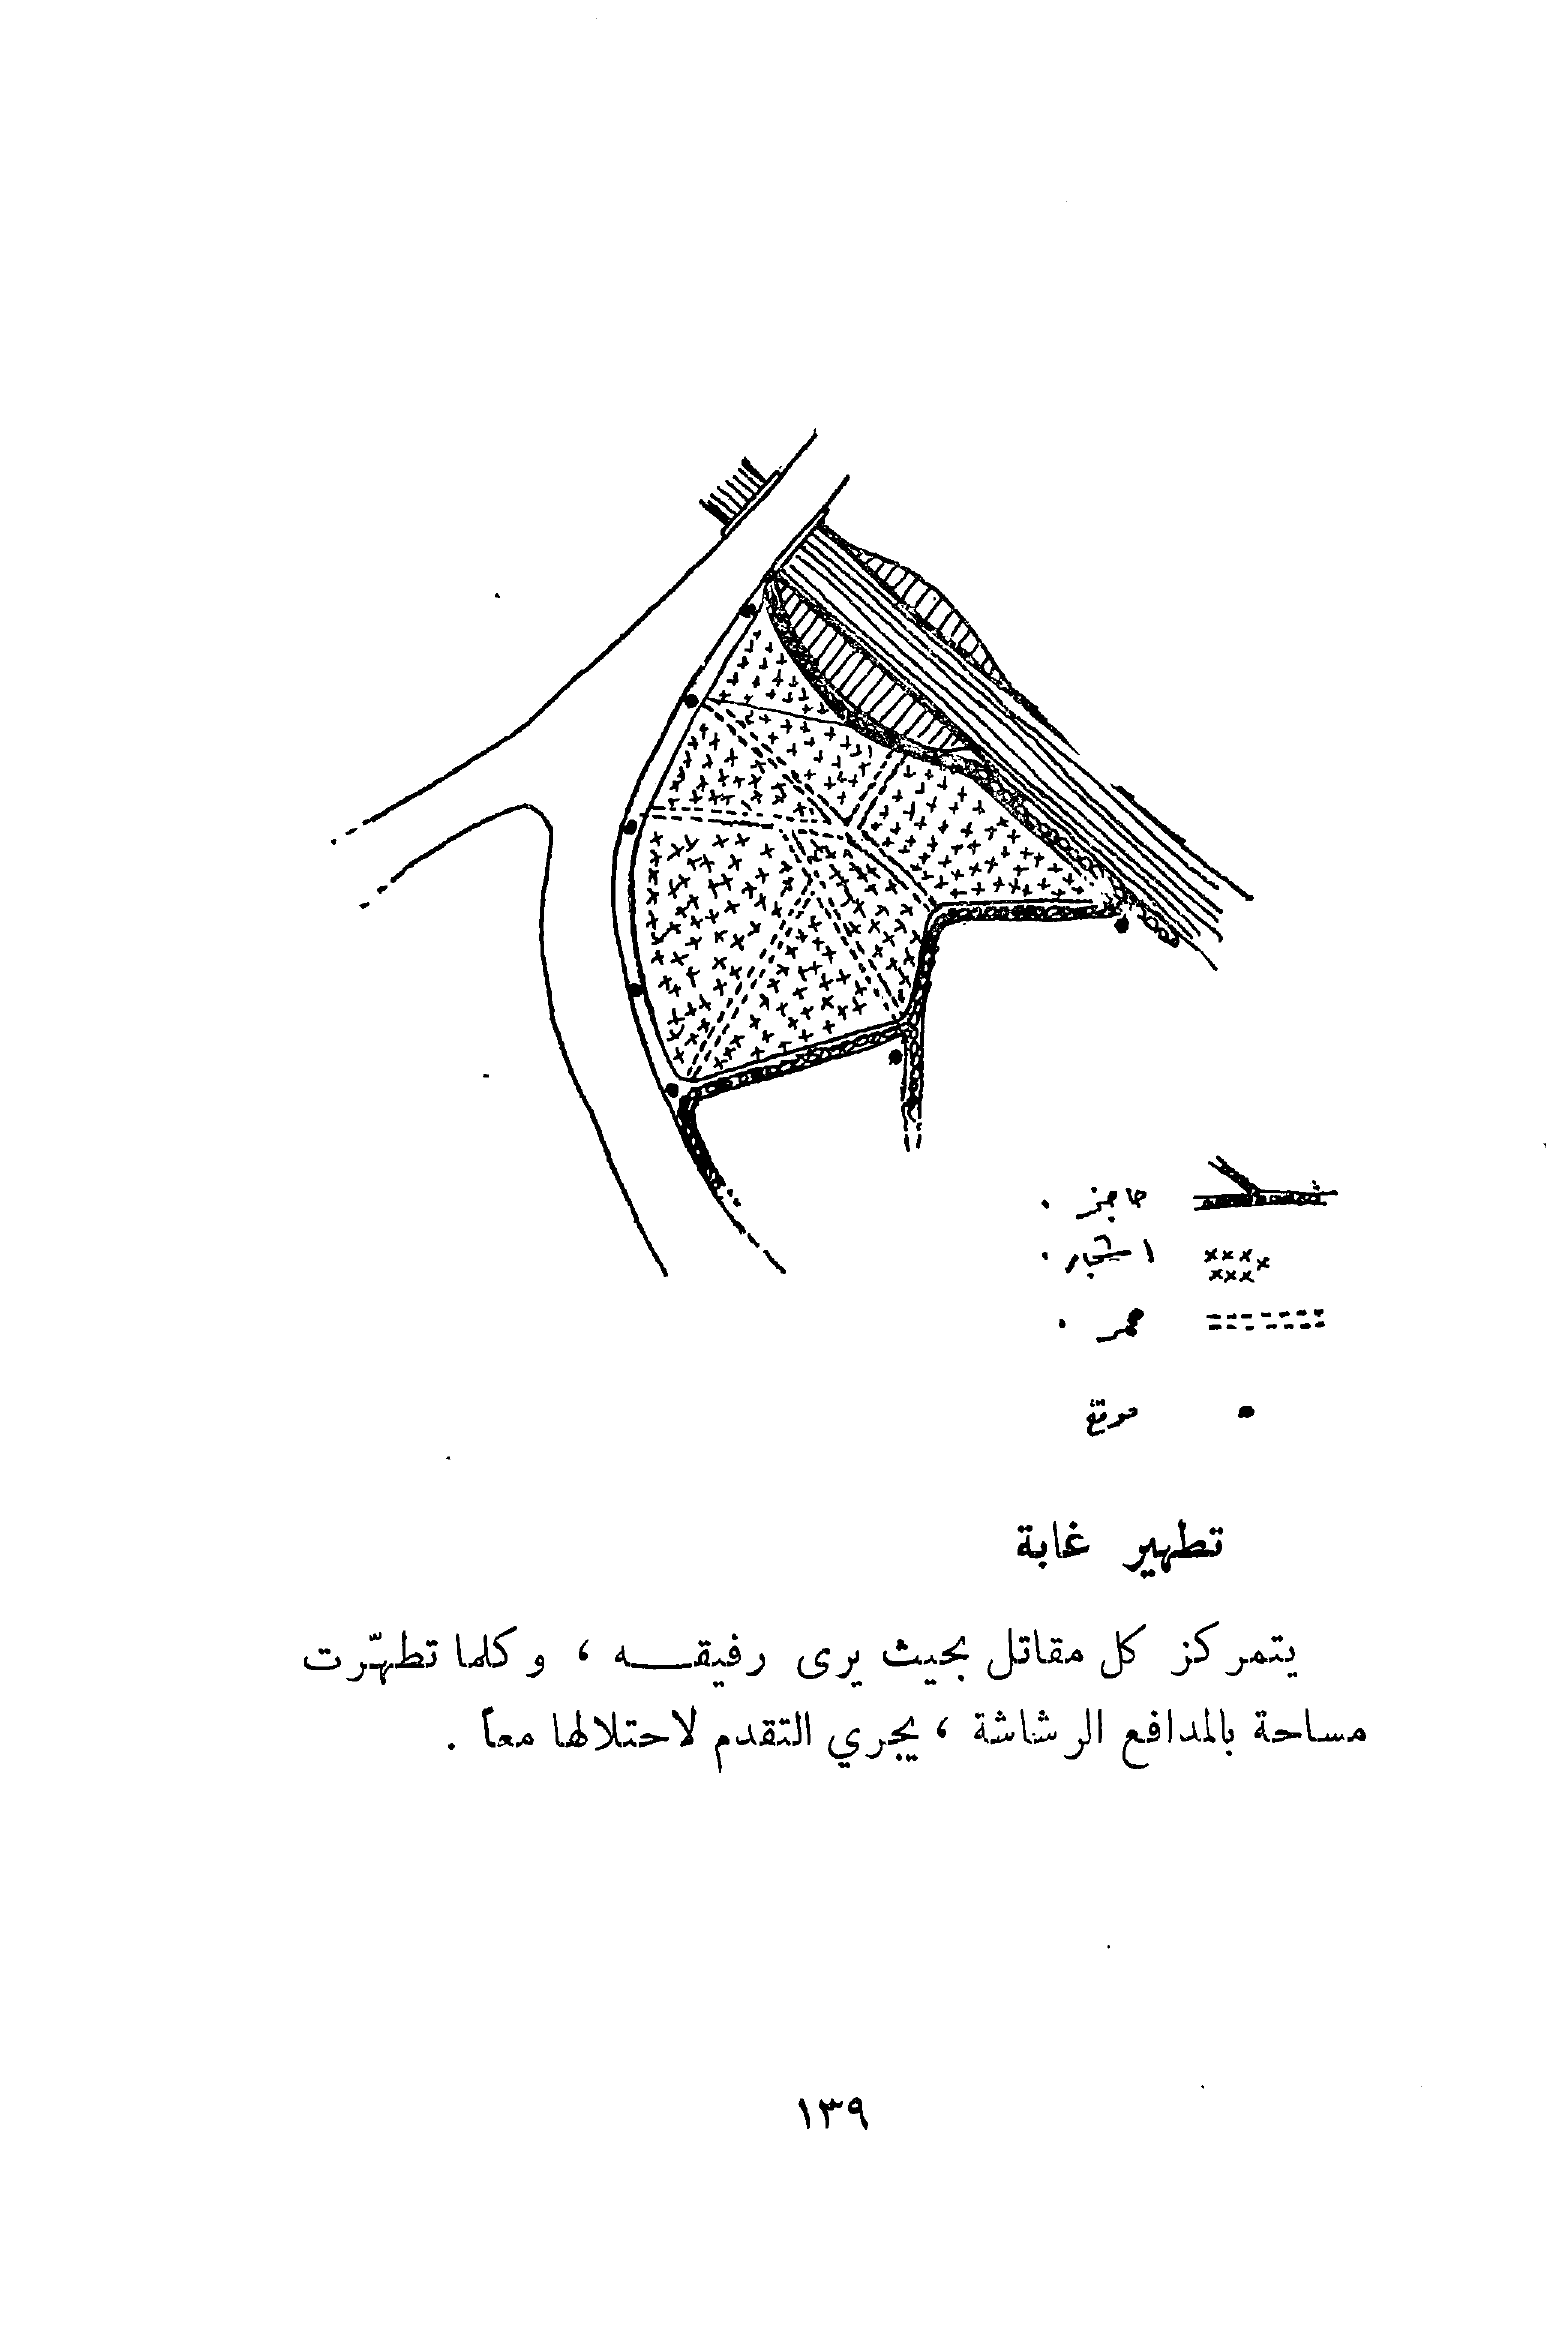 حاجز .
اشجار .
ممر .
موقع
تطهير غابة
يتمركز كل مقاتل بحيث يرى رفيقـــه ، وكلما تطهّرت
مساحة بالمدافع الرشاشة ، يجري التقدم لاحتلالها معاً .
١٣٩